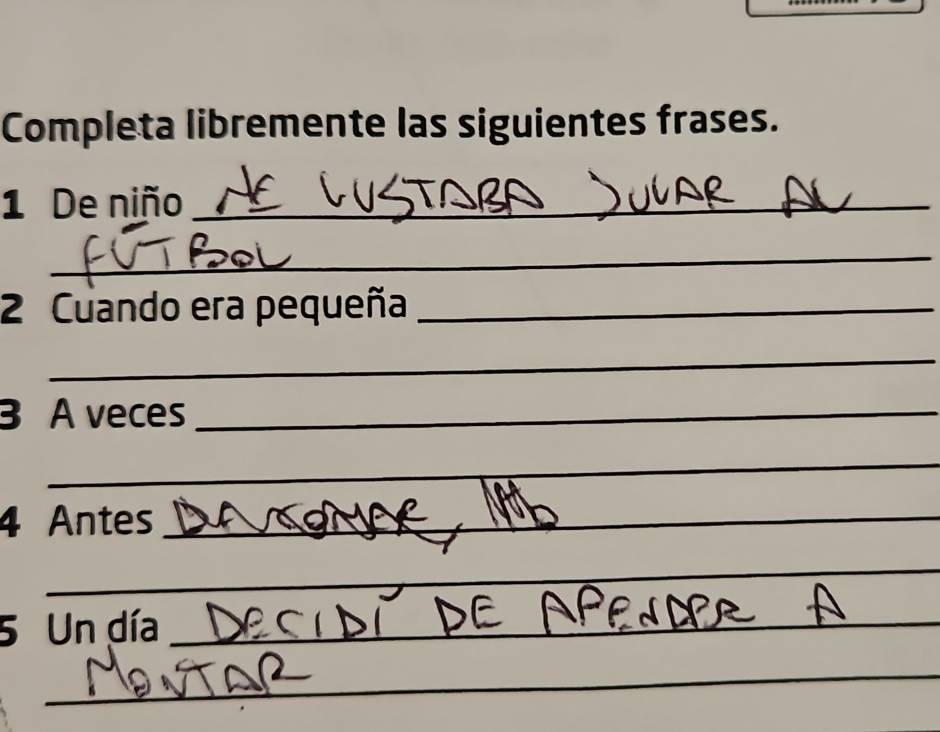 Completa libremente las siguientes frases.
1 De niño ME GUSTABA JUGAR AL
FÚTBOL
2 Cuando era pequeña
3 A veces
4 Antes
5 Un día DECIDÍ DE APENDER A
MONTAR